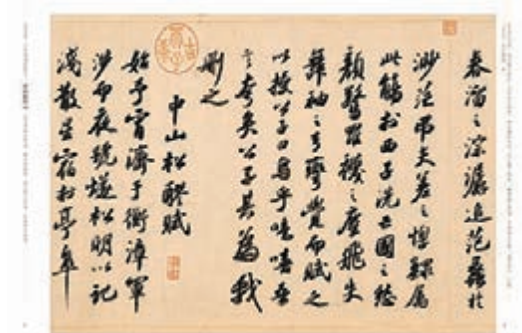 春溜之淙潺追范蠡於
渺茫弔夫差之惸鰥屬
此觴於西子洗亡國之愁
顏驚羅襪之塵飛失
舞袖之弓彎覺而賦之
以授公子曰烏乎噫嘻吾
言夸矣公子其為我
刪之
中山松醪賦
始予宵濟于衡漳軍
涉而夜號燧松明以記
淺散星宿於亭皋